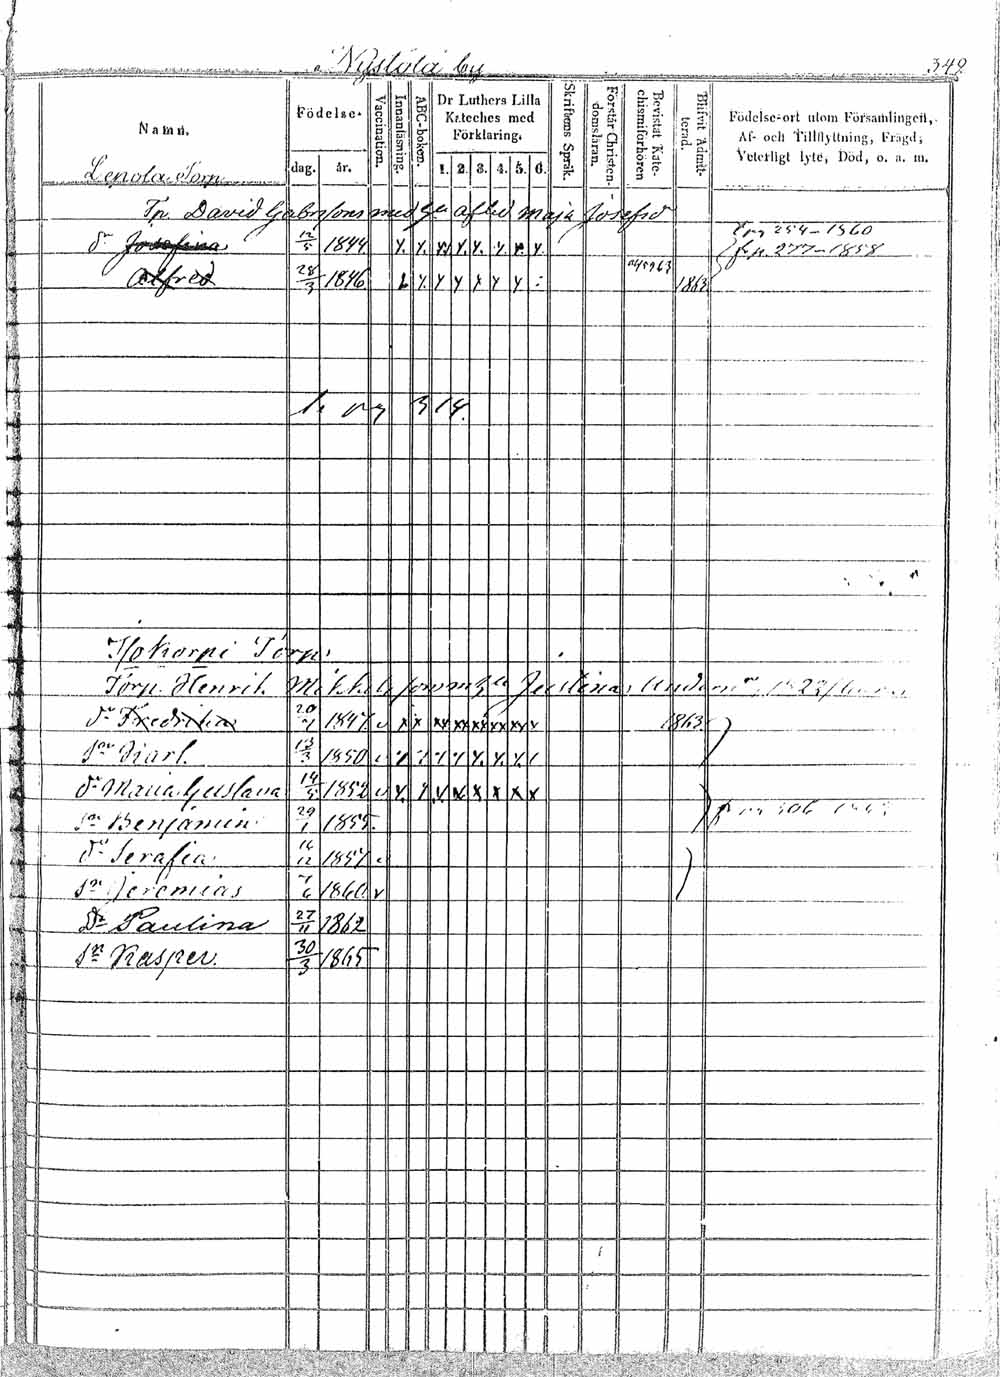 Nystölä by
349
Namn.
Födelse-
dag. år.
Vaccination.
Innanläsning.
ABC-boken.
Dr Luthers Lilla Kateches med Förklaring.
1. 2. 3. 4. 5. 6.
Skriftens Språk.
Förstår Christendomsläran.
Bevistat Katechismiförhören
Blifvit Admitterad.
Födelse-ort utom Församlingen,
Af- och Tillflyttning, Frägd,
Veterligt lyte, Död, o. a. m.
Lepola Torp
Tp. David Gabrssons med h:u afled Maja Josefsd
dr Josefina 12/5 1844
pag 254-1860
f. p. 277-1858
Alfred 28/3 1846 1863
pag 314.
Isokorpi Torp.
Torp. Henrik Mikkels son m h:u Justina
dr Fredrika 1847 1863
sn Karl 1850
dr Maria Gustava 14/5 1852
sn Benjamin 29/1 1855.
dr Serafia 1857
sn Jeremias 7/6 1860
Dr Paulina 27/11 1862
sn Kasper. 30/3 1865